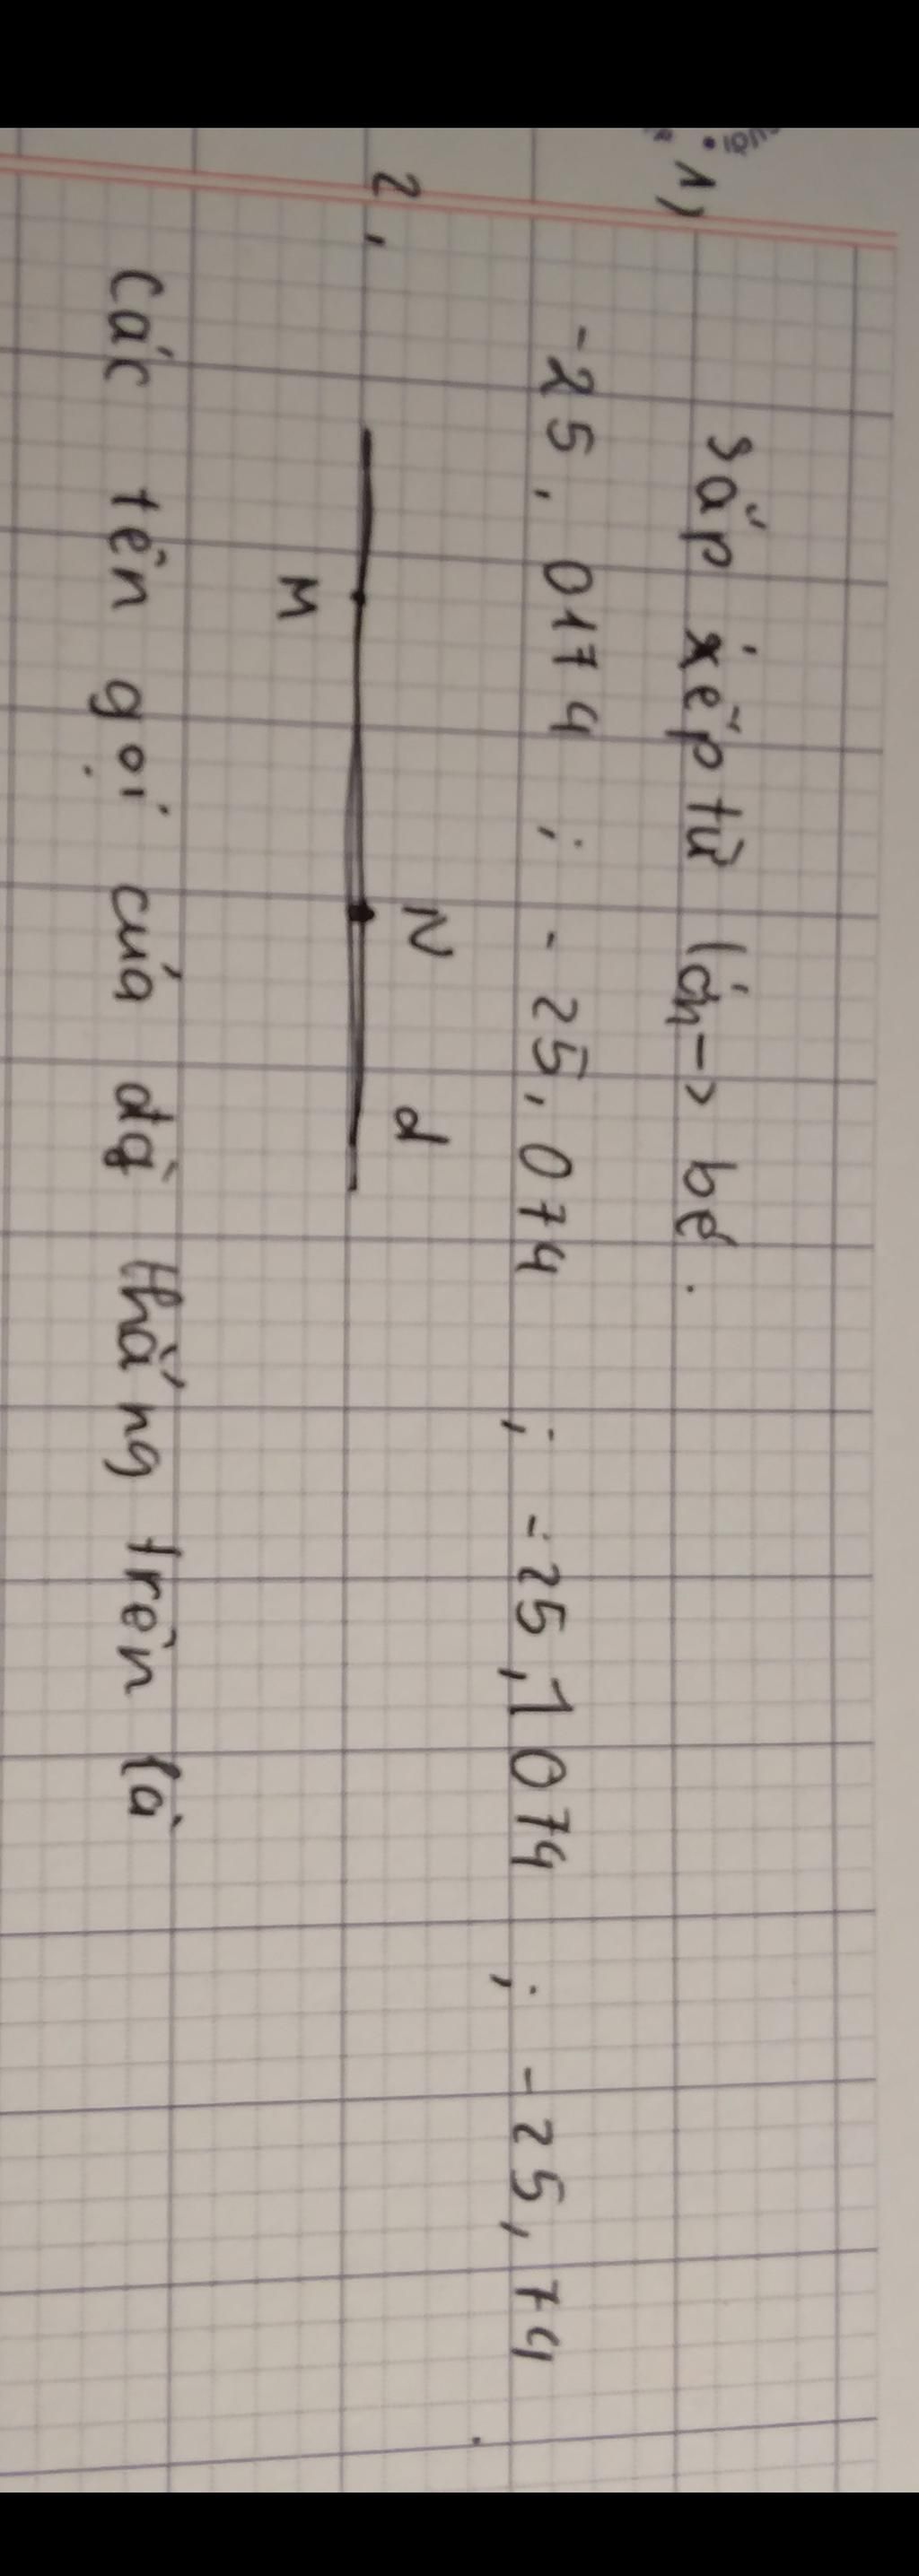 1) sắp xếp từ lớn → bé.
-25,0174 ; -25,074 ; -25,1074 ; -25,74
2,
N d
M
Các tên gọi của đg̀ thẳng trên là